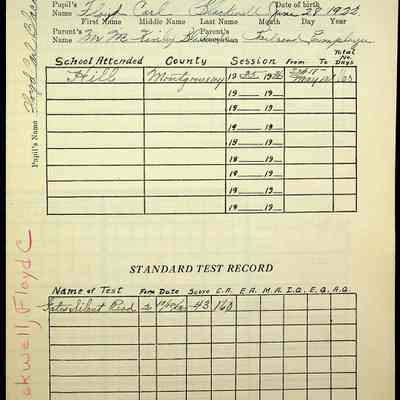 Pupil's Name Floyd Carl Blackwell Date of birth June 28 1922
First Name Middle Name Last Name Month Day Year
Parent's Name Mr Mc Kinley Parent's Occupation Railroad Employee
School Attended County Session From To Total No. Days
Hill Montgomery 19 19
19 19
19 19
19 19
19 19
19 19
19 19
19 19
19 19
Pupil's Name Floyd Carl
STANDARD TEST RECORD
Name of Test Form Date Score C.A. E.A. M.A. I.Q. E.Q. A.Q.
Gates Silent Read 2 43 160
ckwell, Floyd C